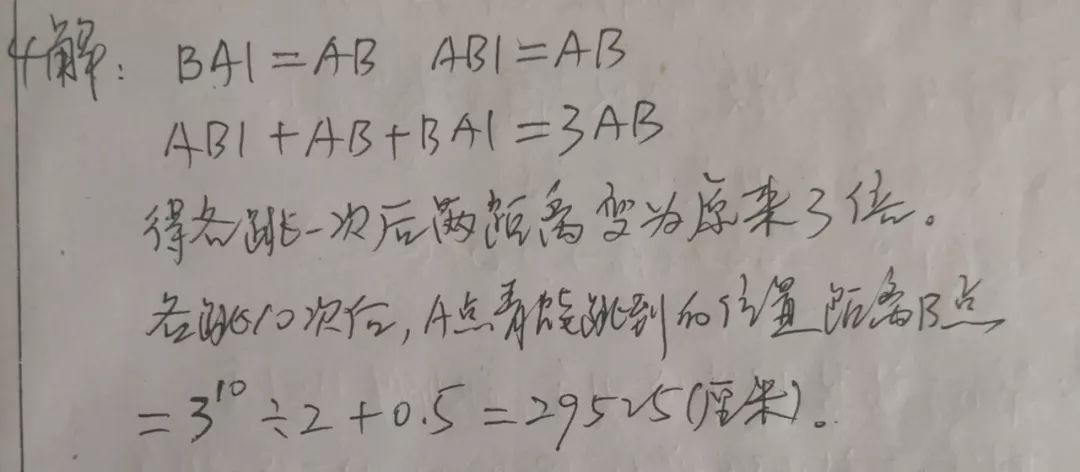 解: BA1=AB AB1=AB
AB1+AB+BA1=3AB
得各跳一次后两距离变为原来3倍。
各跳10次后,A点青蛙跳到的位置距离B点
=3¹⁰÷2+0.5=29525(厘米)。